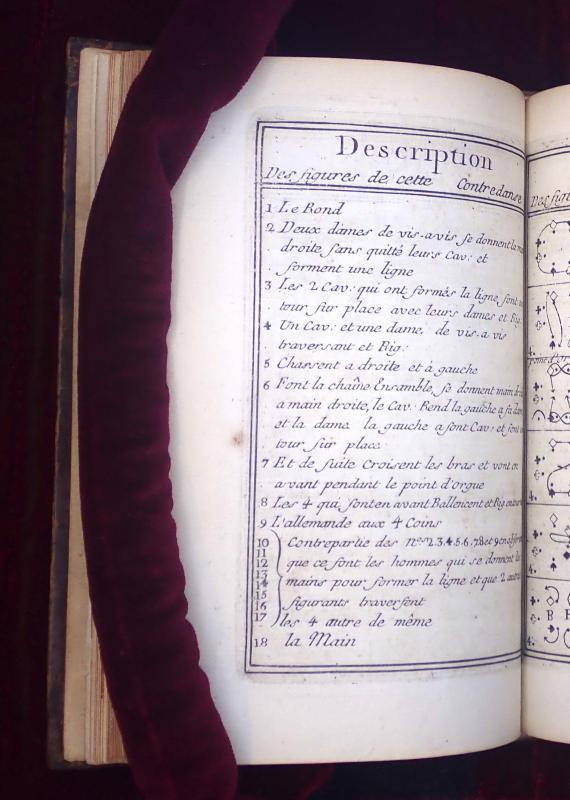 Description
Des figures de cette Contredanse
1 Le Rond
2 Deux dames de vis-avis se donnent la
droite sans quitté leurs Cav: et
forment une ligne
3 Les 2 Cav: qui ont formés la ligne, font un
tour sur place avec leurs dames et Rig:
4 Un Cav: et une dame de vis-a vis
traversant et Rig:
5 Chassent a droite et à gauche
6 Font la chaîne Ensamble, se donnent main
a main droite, le Cav: Rend la gauche a sa
et la dame la gauche a sont Cav: et font
tour sur place
7 Et de suite Croisent les bras et vont en
avant pendant le point d'orgue
8 Les 4 qui sont en avant Ballencent et Rig
9 L'allemande aux 4 Coins
10 Contrepartie des nos 2.3.4.5.6.7.8 et 9
11
12 que ce sont les hommes qui se donnent
13
14 mains pour former la ligne et que 2
15
16 figurants traversent
17 les 4 autre de même
18 la Main
Des
4.
4.
4.
B
4.